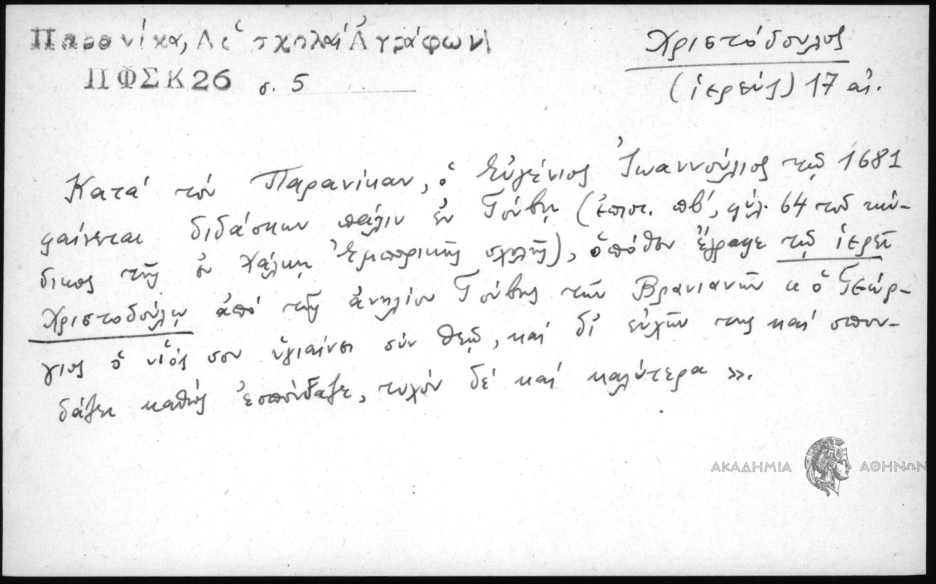 Παρανίκα, Αἱ σχολαί Ἀγράφων
ΠΦΣΚ 26 σ. 5
Χριστόδουλος
(ἱερεύς) 17 αἰ.
Κατά τόν Παρανίκαν, ὁ Εὐγένιος Ἰωαννούλιος τῷ 1681
φαίνεται διδάσκων πάλιν ἐν Γούβῃ (ἐπιστ. πβ', φύλ. 64 τοῦ κώ-
δικος τῆς ἐν Χάλκῃ Ἐμπορικῆς σχολῆς), ὁπόθεν ἔγραψε τῷ ἱερεῖ
Χριστοδούλῳ ἀπό τῆς ἀνηλίου Γούβης τῶν Βρανιανῶν κ ὁ Γεώρ-
γιος ὁ υἱός σου ὑγιαίνει σύν θεῷ, καί δι' εὐχῶν της καί σπου-
δάζει καθώς ἐσπούδαζε, τυχόν δέ καί καλύτερα ».
ΑΚΑΔΗΜΙΑ ΑΘΗΝΩΝ